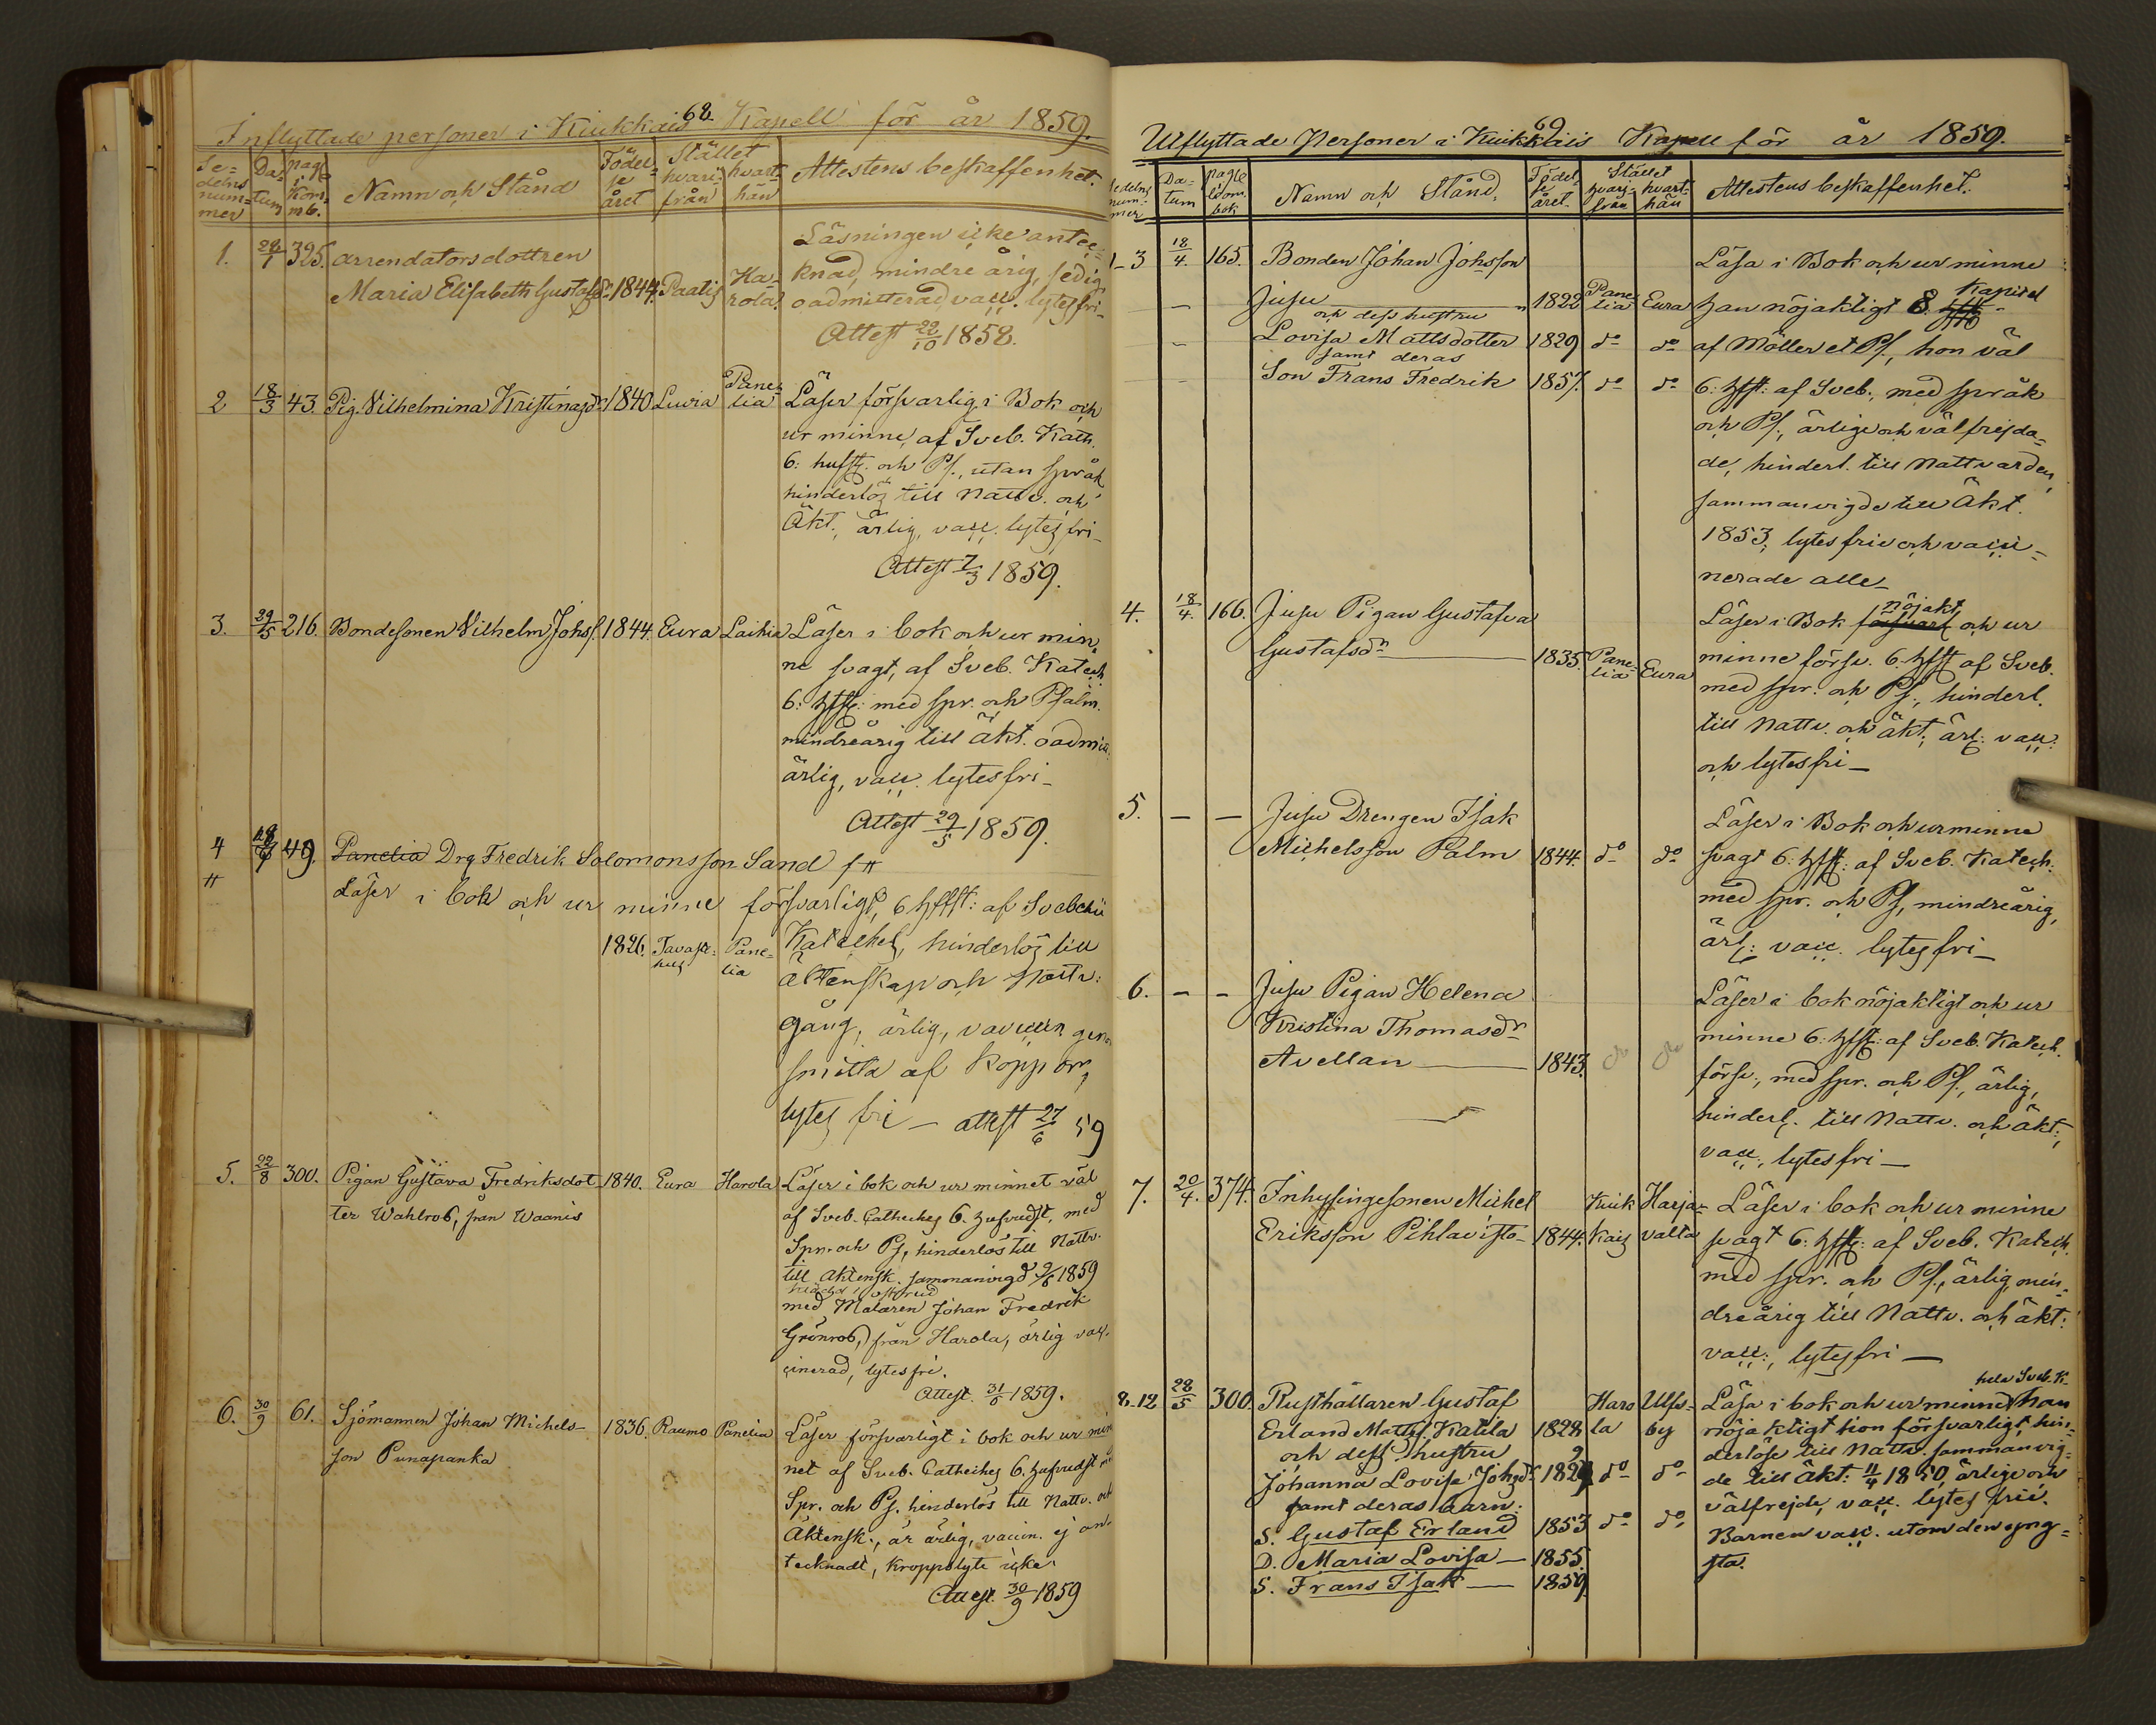 68.
Inflyttade personer i Kiukkais Kapell för år 1859.
Se-delns num-mer | Da-tum | pag. i Kom. mb. | Namn och Stånd | Födel-se året | Stället hvari-från | hvart-hän | Attestens beskaffenhet.
1. 28/1 325. arrendatorsdottren
Maria Elisabeth Gustafsdr 1844. Paatis Ha-rola.
Läsningen icke anteck-
nad, mindre årig, sedig,
oadmitterad vacc. lytesfri-
Attest 22/10 1858.
2 18/3 43. Pig. Vilhelmina Kristinasdr 1840 Luvia Pane-lia
Läser försvarlig i Bok och
ur minne, af Sveb. Kath.
6: hufst. och Ps., utan språk
hinderlös till Nattv. och
Äkt., ärlig, vacc. lytes fri-
Attest 7/3 1859.
3. 29/5 216. Bondesonen Vilhelm Johs. 1844. Eura Laihia
Läser i bok och ur min-
ne svagt, af Sveb. Katech.
6: hfst: med spr. och Psalm.
mindreårig till äkt. oadmitt.
ärlig, vacc. lytesfri-
Attest 29/5 1859.
4 49. Panelia Drg Fredrik Solomonsson Sand
Läser i bok och ur minne försvarligt, 6 hffst: af Svebelii
1826. Tavaste-hus Pane-lia
Kateches, hinderlös till
äktenskap och Nattv:
gång, ärlig, vaccin gen.
smitta af Koppor,
lytes fri - attest 27/6 59
5. 22/8 300. Pigan Gustava Fredriksdot- 1840. Eura Harola
ter Wahlros, från Waanis
Läser i bok och ur minnet väl
af Sveb. Catheches 6. hufvudst, med
Spr. och Ps, hinderlös till Nattv.
till Äktensk. sammanvigd 9/6 1859
med Målaren Johan Fredrik
Grönros, från Harola, ärlig vac-
cinerad, lytes fri.
Attest. 31/6 1859.
6. 30/9 61. Sjömannen Johan Michels- 1836. Raumo Panelia
son Punapanka
Läser försvarligt i bok och ur min
net af Sveb. Catheches 6. hufvudst
Spr. och Ps. hinderlös till Nattv. och
Äktensk., är ärlig, vaccin. ej an-
tecknadt, kroppslyte icke.
Attest. 30/9 1859
69
Utflyttade Personer i Kiukkais Kapell för år 1859.
Sedelns num-mer | Da-tum | pag i Kom. bok | Namn och Stånd, | Födel-se året. | Stället hvari-från | hvart-hän | Attestens beskaffenhet.
1-3 18/4. 165. Bonden Johan Johsson
Jusu 1822 Pane-lia Eura
och dess hustru
Lovisa Mattsdotter 1829 do do
samt deras
Son Frans Fredrik 1857. do do
Läsa i Bok och ur minne
han nöjaktigt 8. Kapitel
af Möller et Ps., hon väl
6: hfst: af Sveb., med språk
och Ps., ärliga och välfrejda-
de, hinderl. till Nattvarden,
sammanvigde till Äkt.
1853, lytes fria och vacci-
nerade alle-
4. 18/4. 166. Jusu Pigan Gustafva
Gustafsdr 1835. Pane-lia Eura
Läser i Bok försvarl nöjakt. och ur
minne försv. 6. hfst af Sveb.
med spr. och Ps., hinderl.
till Nattv. och äkt; ärl: vacc:
och lytesfri-
5. - - Jusu Drengen Isak
Michelsson Palm 1844. do do
Läser i Bok och ur minne
svagt 6: hfst: af Sveb. Katech.
med spr. och Ps, mindreårig,
ärl: vacc. lytesfri-
6. - - Jusu Pigan Helena
Kristina Thomasdr
Avellan 1843. do do
Läser i bok nöjaktigt och ur
minne 6: hfst: af Sveb. Katech.
försv., med spr. och Ps., ärlig,
hinderl. till Nattv. och äkt:,
vacc:, lytesfri-
7. 20/4. 374. Inhysingesonen Michel Kiuk Harja-
Eriksson Pihlavisto- 1844. kais valta
Läser i bok och ur minne
svagt 6: hfst: af Sveb. Katech.
med spr. och Ps., ärlig, min-
dreårig till Nattv. och äkt:
vacc:, lytesfri-
8.12 28/5 300. Rusthållaren Gustaf Haro Ulfs-
Erland Matts. Katila 1828 la by
och dess hustru
Johanna Lovisa Johsdr 1829 do do
samt deras barn:
S. Gustaf Erland 1853 do do
D. Maria Lovisa - 1855.
S. Frans Isak - 1859.
hela Sveb. K.
Läsa i bok och ur minne han
nöjaktigt hon försvarligt, hin-
derlöse till Nattv. sammanvig-
de till Äkt: 11/4 1850, ärliga och
välfrejde, vacc. lytes frie.
Barnen vacc. utom den yng-
sta.